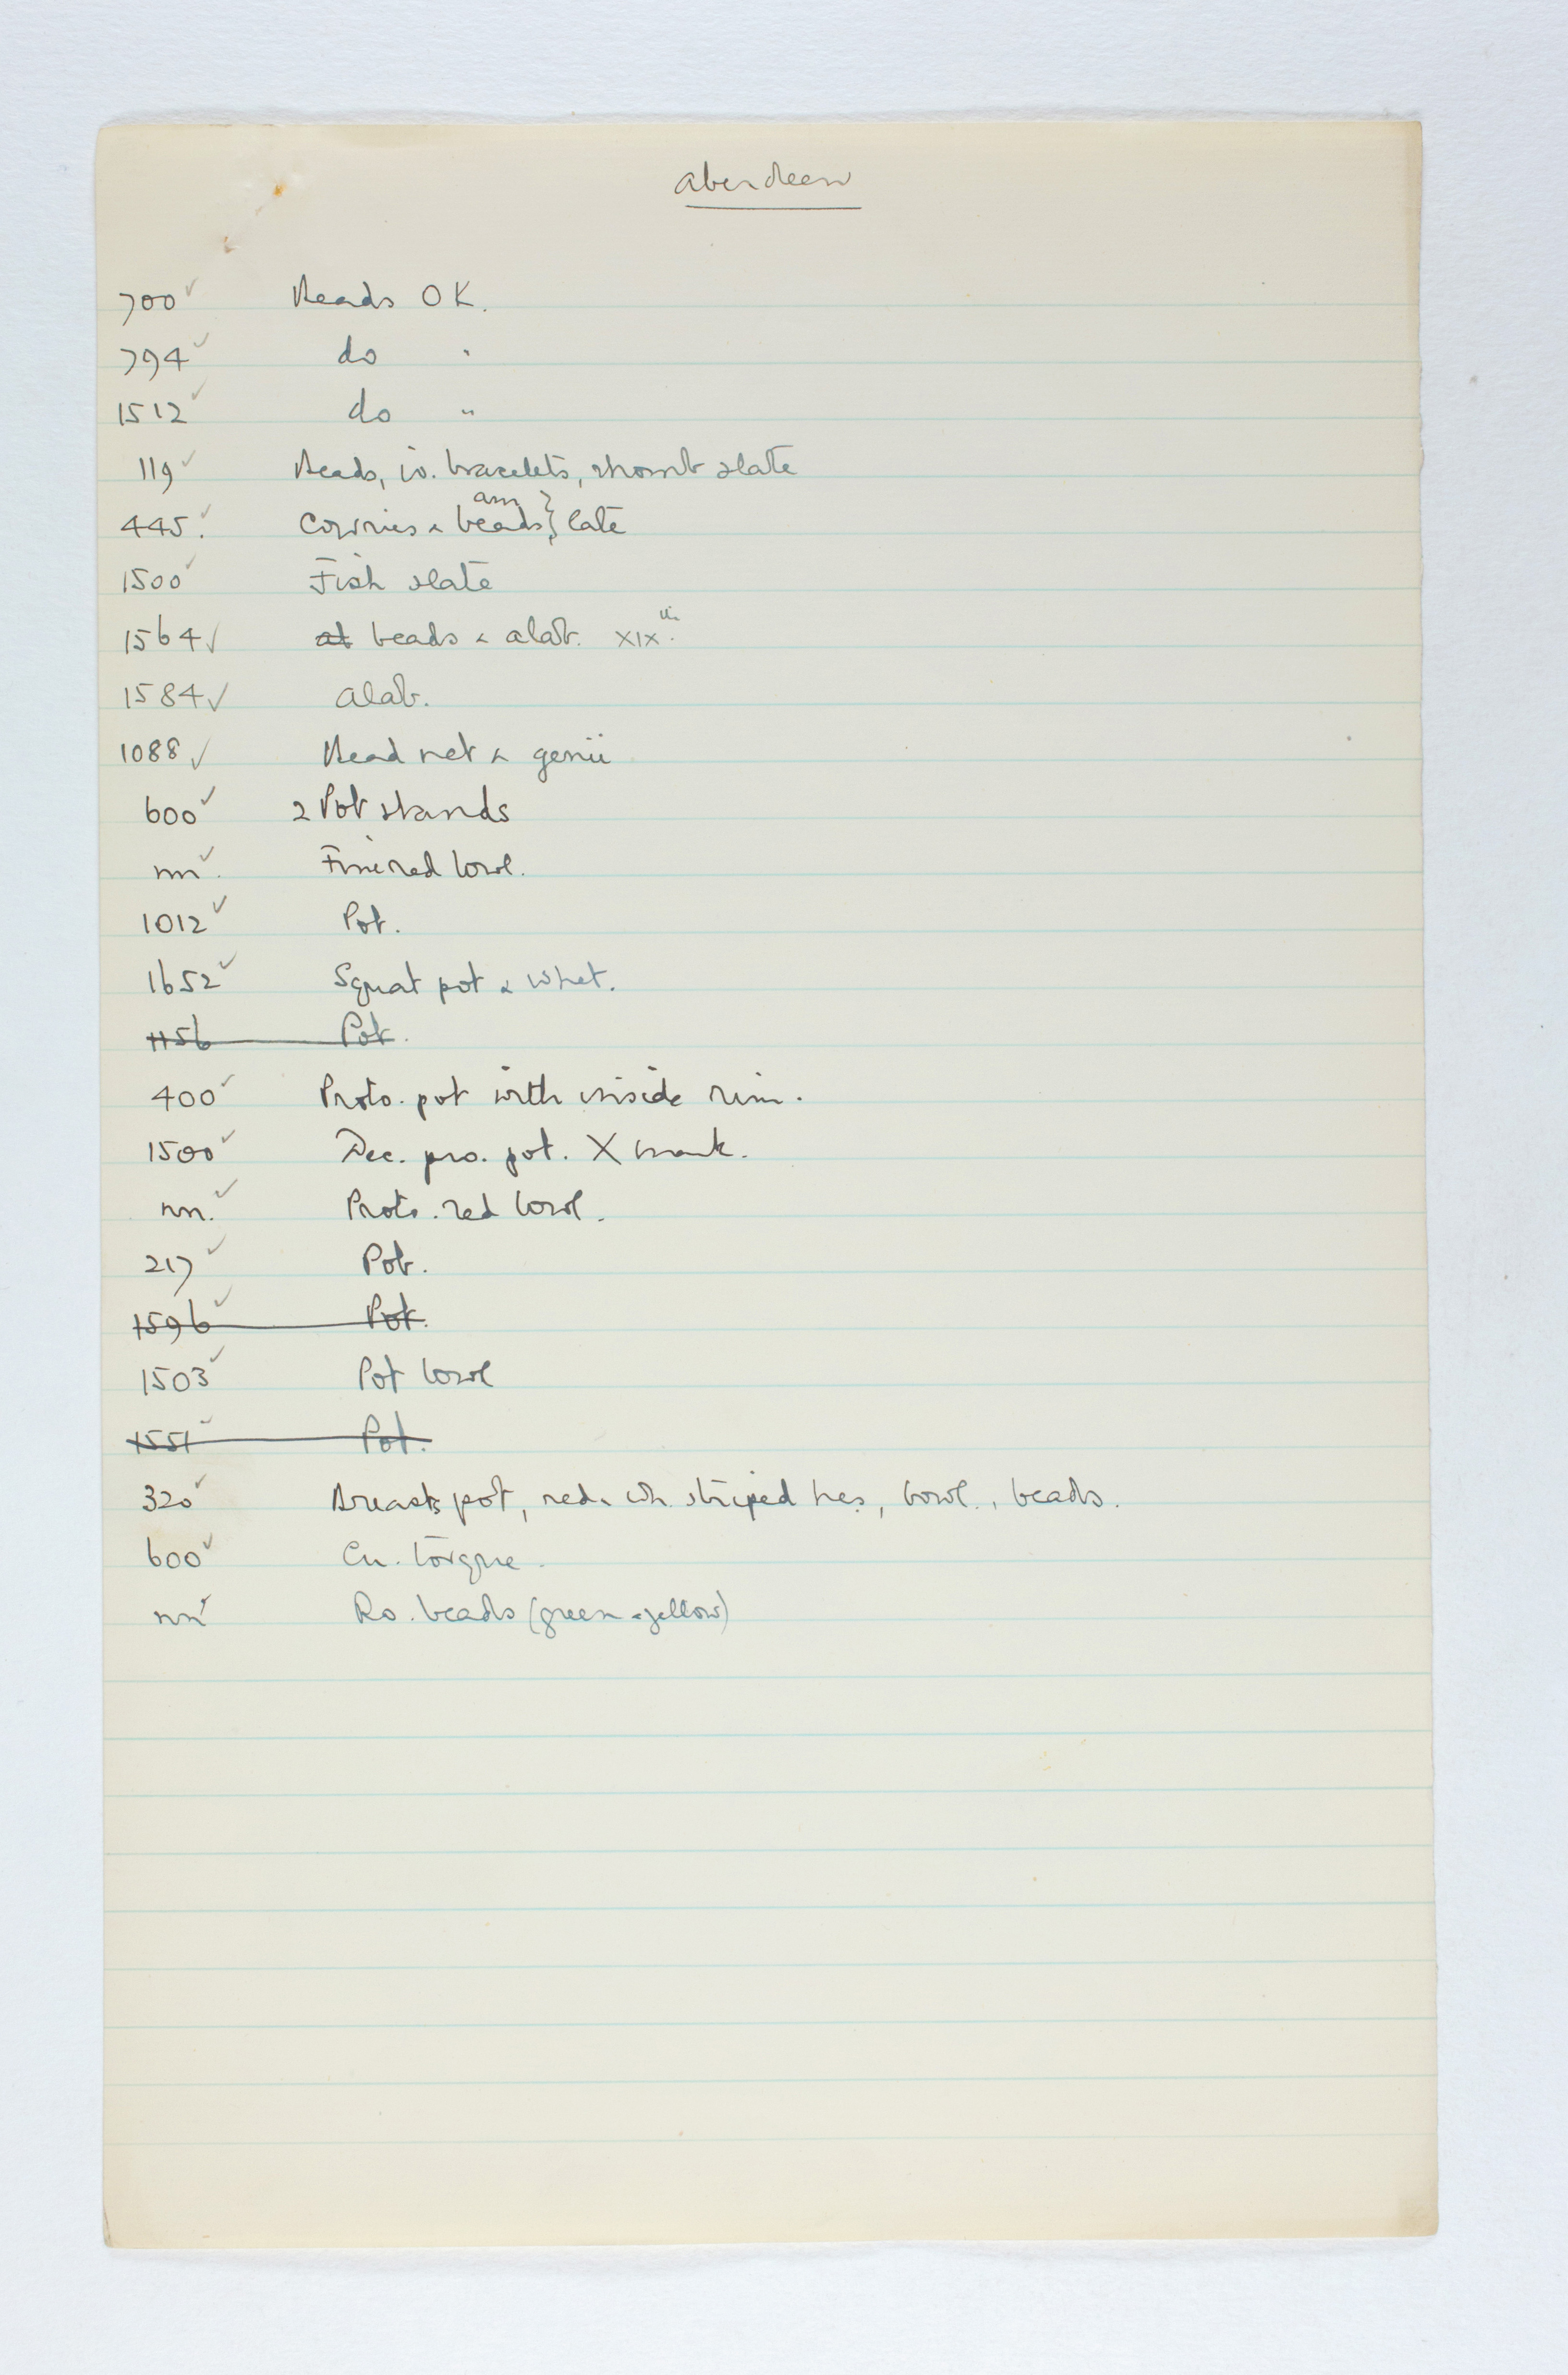 Aberdeen
700 ✓ Beads OK.
794 ✓ do "
1512 ✓ do "
119 ✓ Beads, iv. bracelets, rhomb slate
am
445. ✓ Cowries & beads } late
1500 ✓ Fish slate
1564 ✓ al beads & alab. XIXth.
1584 ✓ alab.
1088 ✓ Bead net & genii
600 ✓ 2 Pot stands
nn. ✓ Fine red bowl.
1012 ✓ Pot.
1652 ✓ Squat pot & whet.
1156 Pot.
400 ✓ Proto. pot with inside rim.
1500 ✓ Dec. pro. pot. X mark.
nn. ✓ Proto. red bowl.
217 ✓ Pot.
1596 ✓ Pot.
1503 ✓ Pot bowl
1551 ✓ Pot.
320 ✓ Breasts pot, red & wh. striped hes, bowl., beads.
600 ✓ Cu. torque.
nn ✓ Ro. beads (green & yellow)